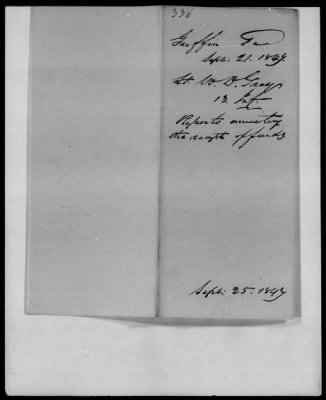 336
Griffin Ga
Sept. 21. 1847.
Lt. W. D. Gray
13. Inf.
Reports
the receipt of funds
Sept. 25. 1847